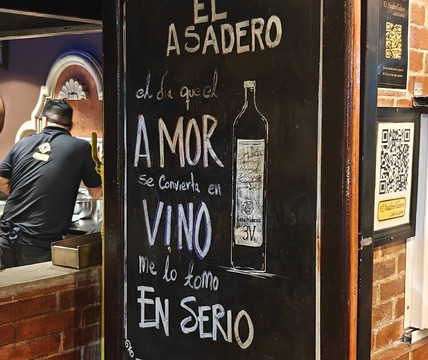 EL
ASADERO
el día que el
AMOR
se convierta en
VINO
me lo tomo
EN SERIO
3V